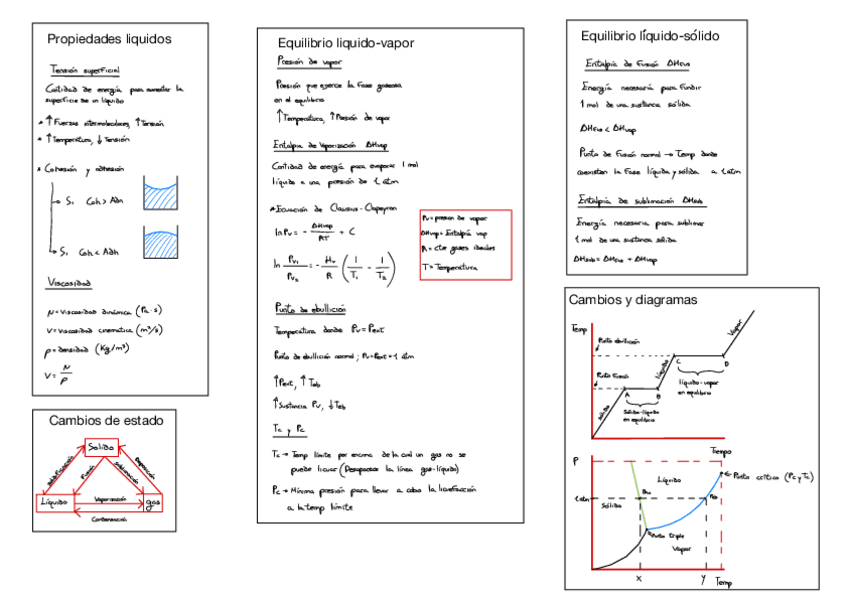 Propiedades liquidos
Tensión superficial
Cantidad de energía para aumentar la
superficie de un líquido
* ↑ Fuerzas intermoleculares, ↑ Tensión
* ↑ Temperatura, ↓ Tensión
* Cohesión y adhesión
Si Coh > Adh
Si Coh < Adh
Viscosidad
μ = Viscosidad dinámica (Pa·s)
V = Viscosidad cinematica (m²/s)
ρ = densidad (Kg/m³)
V = μ/ρ
Cambios de estado
Solido
solidificación
Fusión
sublimación
Deposición
Líquido
Vaporización
gas
Condensación
Equilibrio liquido-vapor
Presión de vapor
Presión que ejerce la fase gaseosa
en el equilibrio
↑ Temperatura, ↑ Presión de vapor
Entalpía de Vaporización ΔHvap
Cantidad de energía para evaporar 1 mol
líquido a una presión de 1 atm
* Ecuación de Clausius-Clapeyron
ln Pv = - ΔHvap/RT + C
ln Pv1/Pv2 = - Hv/R (1/T1 - 1/T2)
Pv = presion de vapor
ΔHvap = Entalpía vap
R = cte gases ideales
T = Temperatura
Punto de ebullición
Temperatura donde Pv = Pext
Punto de ebullición normal; Pv = Pext = 1 atm
↑ Pext, ↑ Teb
↑ Sustancia Pv, ↓ Teb
Tc y Pc
Tc → Temp límite por encima de la cual un gas no se
puede licuar (Desaparece la línea gas-líquido)
Pc → Mínima presión para llevar a cabo la licuefacción
a la temp límite
Equilibrio líquido-sólido
Entalpía de Fusión ΔHfus
Energía necesaria para fundir
1 mol de una sustancia sólida
ΔHfus < ΔHvap
Punto de Fusión normal → Temp donde
coexisten la fase líquida y sólida a 1 atm
Entalpía de sublimación ΔHsub
Energía necesaria para sublimar
1 mol de una sustancia sólida
ΔHsub = ΔHfus + ΔHvap
Cambios y diagramas
Temp
Punto ebullición
Punto Fusión
sólido
A
B
Sólido-líquido
en equilibrio
líquido
C
D
líquido-vapor
en equilibrio
Vapor
Tiempo
P
1 atm
Sólido
Líquido
Punto crítico (Pc y Tc)
Punto triple
Vapor
X
Y
Temp